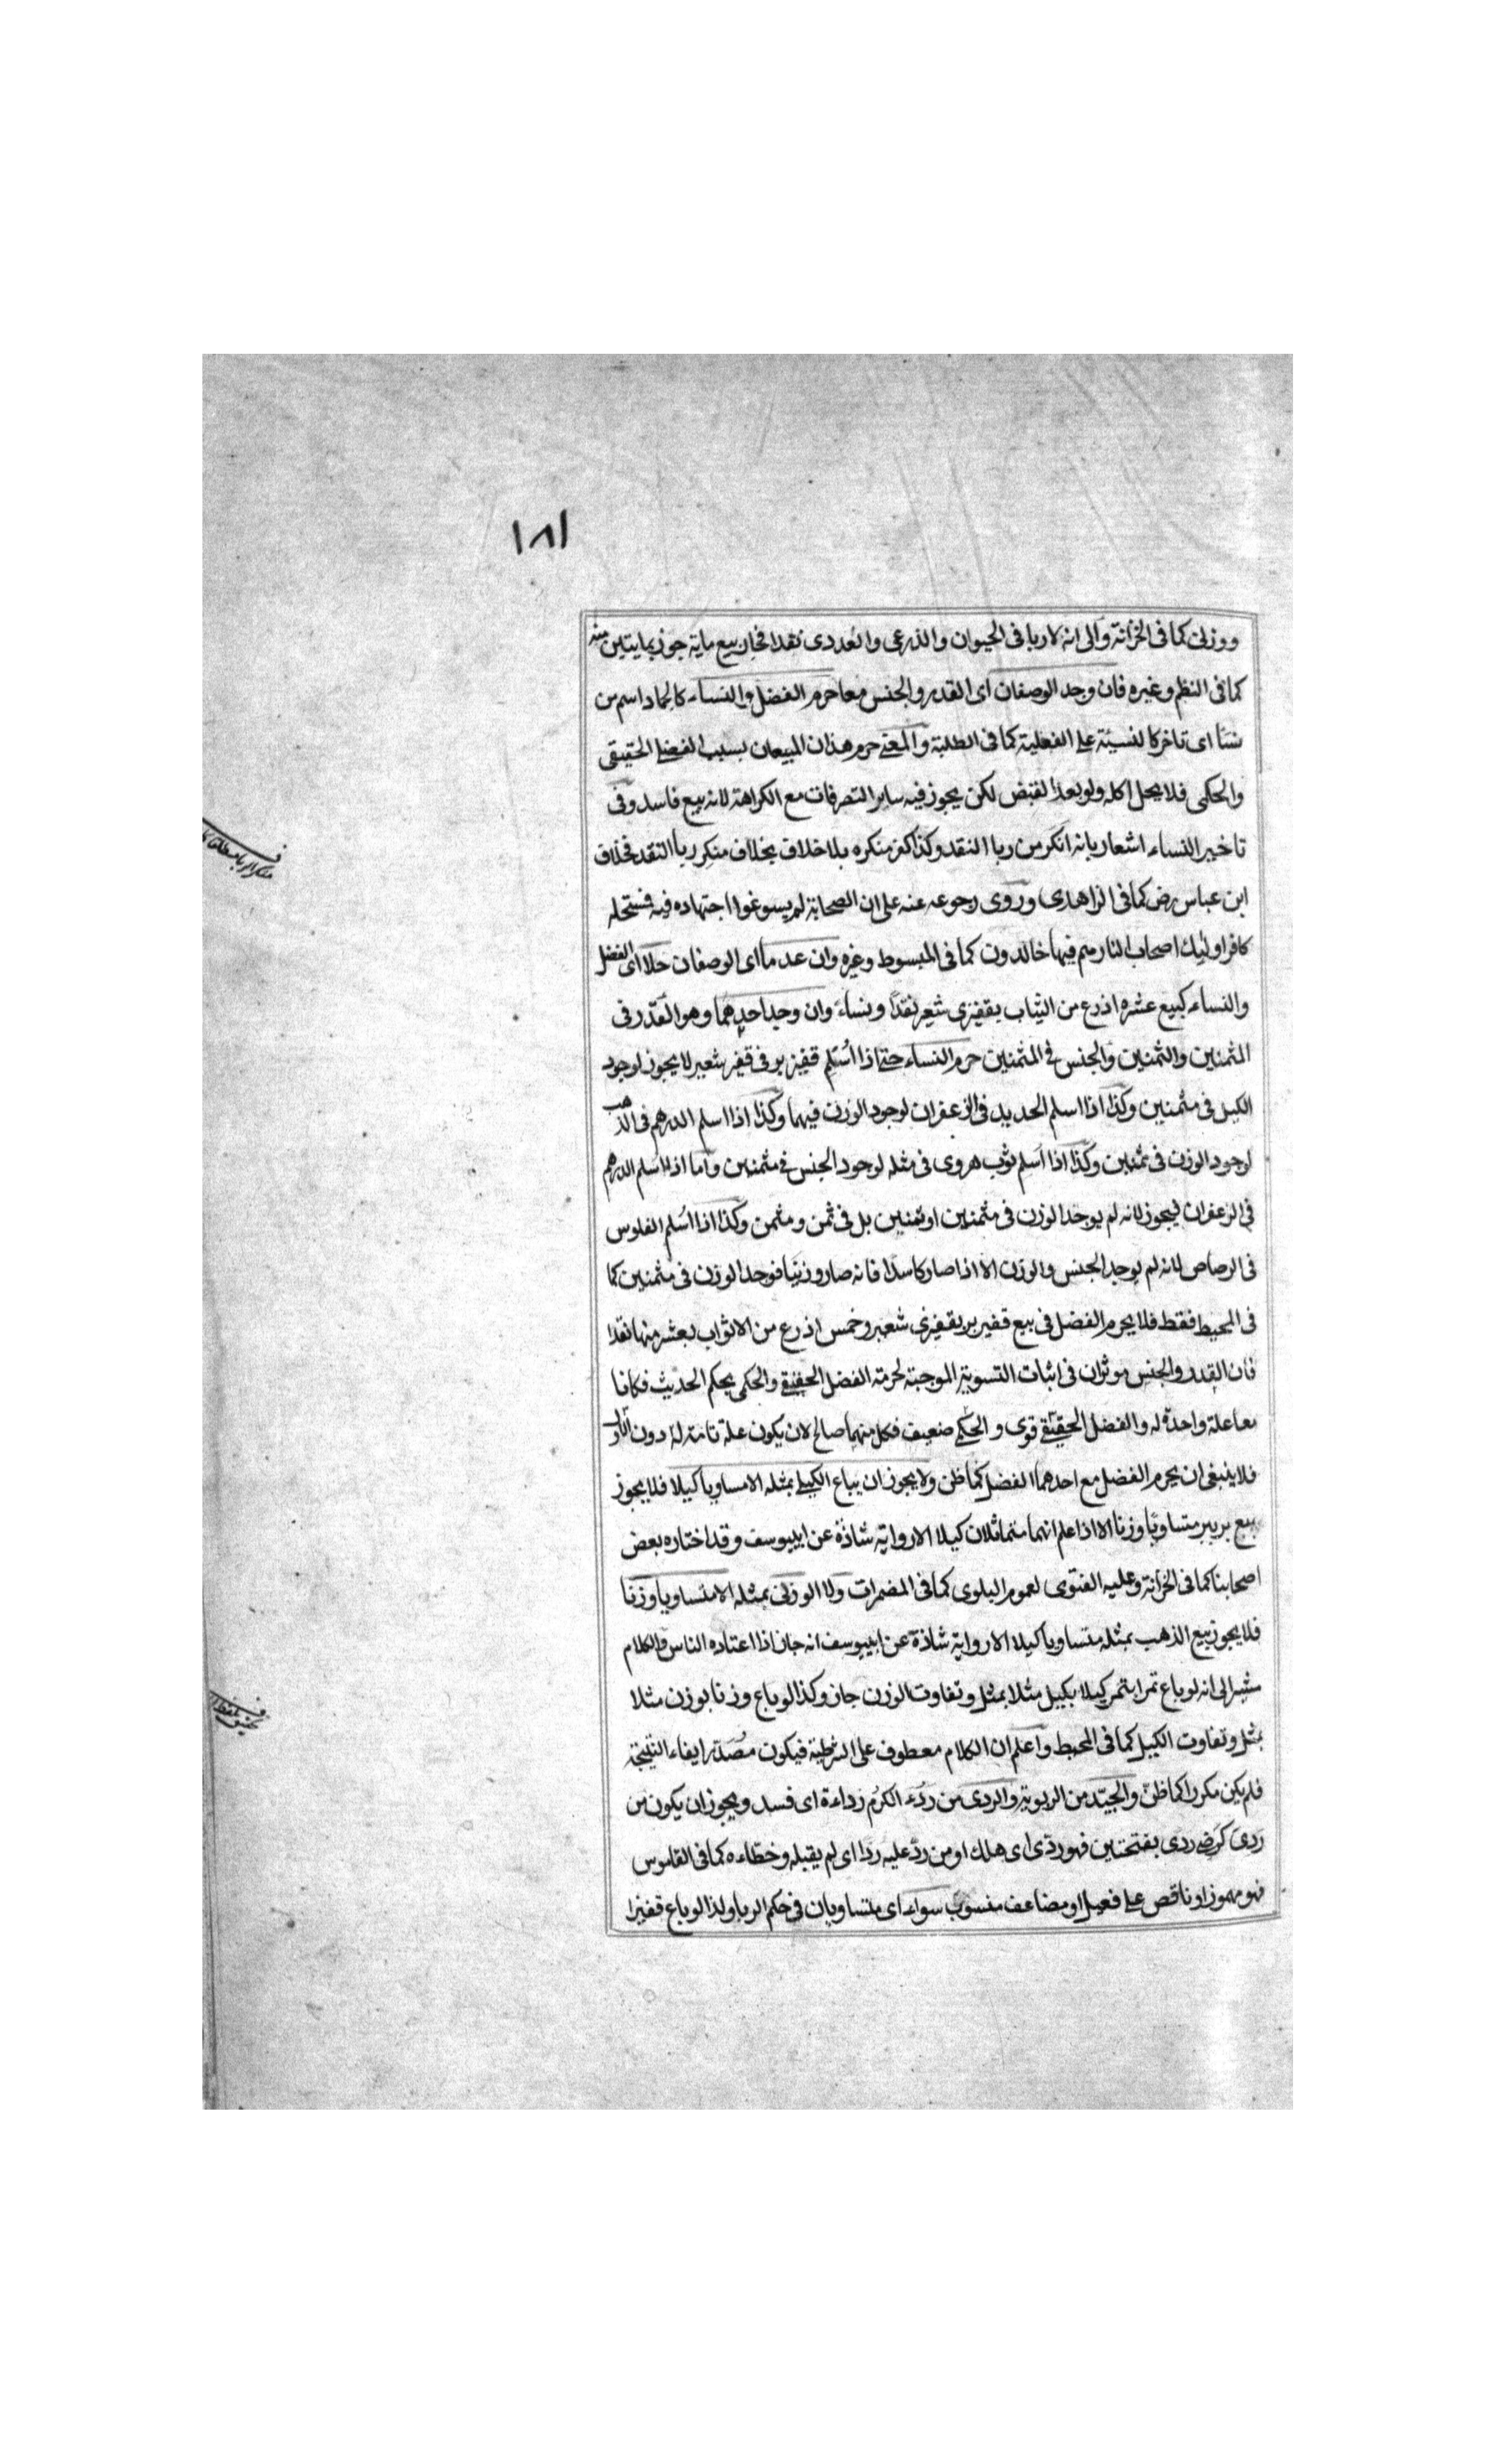 ١٨١
ووزنى كما فى الخزانة والى انه لا ربا فى الحيوان والذرعى والعددى نقدا فجاز بيع ماية جوز بمايتين منه
كما فى النظم وغيره فان وجد الوصفان اى القدر والجنس معا حرم الفضل والنساء كالجماد اسم من
نسأ اى تاخر كالنسيئة على الفعلية كما فى الطلبة والمعنى حرم هذان المبيعان بسبب الفضل الحقيقى
والحكمى فلا يحل اكله ولو بعد القبض لكن يجوز فيه ساير التصرفات مع الكراهة لانه بيع فاسد وفى
تاخير النساء اشعار بانه انكر من ربا النقد وكذا كفر منكره بلا خلاف بخلاف منكر ربا النقد فخلاف
ابن عباس رض كما فى الزاهدى وروى رجوعه عنه على ان الصحابة لم يسوغوا اجتهاده فيه فستحله
كافر اوليك اصحاب النار هم فيها خالدون كما فى المبسوط وغيره وان عدما اى الوصفان حلا اى الفضل
والنساء كبيع عشره اذرع من الثياب بقفيزى شعير نقدا ونساء وان وجد احدهما وهو القدر فى
المثمنين والثمنين والجنس فى المثمنين حرم النساء حتى اذا اسلم قفيز بر فى قفيز شعير لا يجوز لوجود
الكيل فى مثمنين وكذا اذا اسلم الحديد فى الزعفران لوجود الوزن فيهما وكذا اذا اسلم الدرهم فى الذهب
لوجود الوزن فى ثمنين وكذا اذا اسلم ثوب هروى فى مثله لوجود الجنس فى مثمنين واما اذا اسلم الدرهم
فى الزعفران فيجوز لانه لم يوجد الوزن فى مثمنين او ثمنين بل فى ثمن ومثمن وكذا اذا اسلم الفلوس
فى الرصاص لانه لم يوجد الجنس والوزن الا اذا صار كاسدا فانه صار وزنيا فوجد الوزن فى مثمنين كما
فى المحيط فقط فلا يحرم الفضل فى بيع قفيز بر بقفيزى شعير وخمس اذرع من الاثواب بعشر منها نقدا
فان القدر والجنس موثران فى اثبات التسوية الموجبة لحرمة الفضل الحقيقى والحكمى بحكم الحديث فكانا
معا علة واحدة له والفضل الحقيقى قوى والحكمى ضعيف فكل منهما صالح لان يكون علة تامة له دون الاول
فلا ينبغى ان يحرم الفضل مع احدهما الفضل كما ظن ولا يجوز ان يباع الكيلى بمثله الا مساويا كيلا فلا يجوز
بيع بر ببر متساويا وزنا الا اذا علم انهما متماثلان كيلا الا رواية شاذة عن ابيوسف وقد اختاره بعض
اصحابنا كما فى الخزانة وعليه الفتوى لعموم البلوى كما فى المضمرات ولا الوزنى بمثله الا متساويا وزنا
فلا يجوز بيع الذهب بمثله متساويا كيلا الا رواية شاذة عن ابيوسف انه جاز اذا اعتاده الناس والكلام
مشير الى انه لو باع تمرا بتمر كيلا بكيل مثلا بمثل وتفاوت الوزن جاز وكذا لو باع وزنا بوزن مثلا
بمثل وتفاوت الكيل كما فى المحيط واعلم ان الكلام معطوف على الشرطية فيكون مصدرا بفاء النتيجة
فلم يكن مكررا كما ظن والجيد من الربوية والردى من ردء الكرم رداءة اى فسد ويجوز ان يكون من
ردى كرضى ردى بفتحتين فهو ردى اى هلك او من رد عليه ردا اى لم يقبله وخطاءه كما فى القاموس
فهو مهموز او ناقص على فعيل او مضاعف منسوب سواء اى متساويان فى حكم الربا ولذا لو باع قفيزا